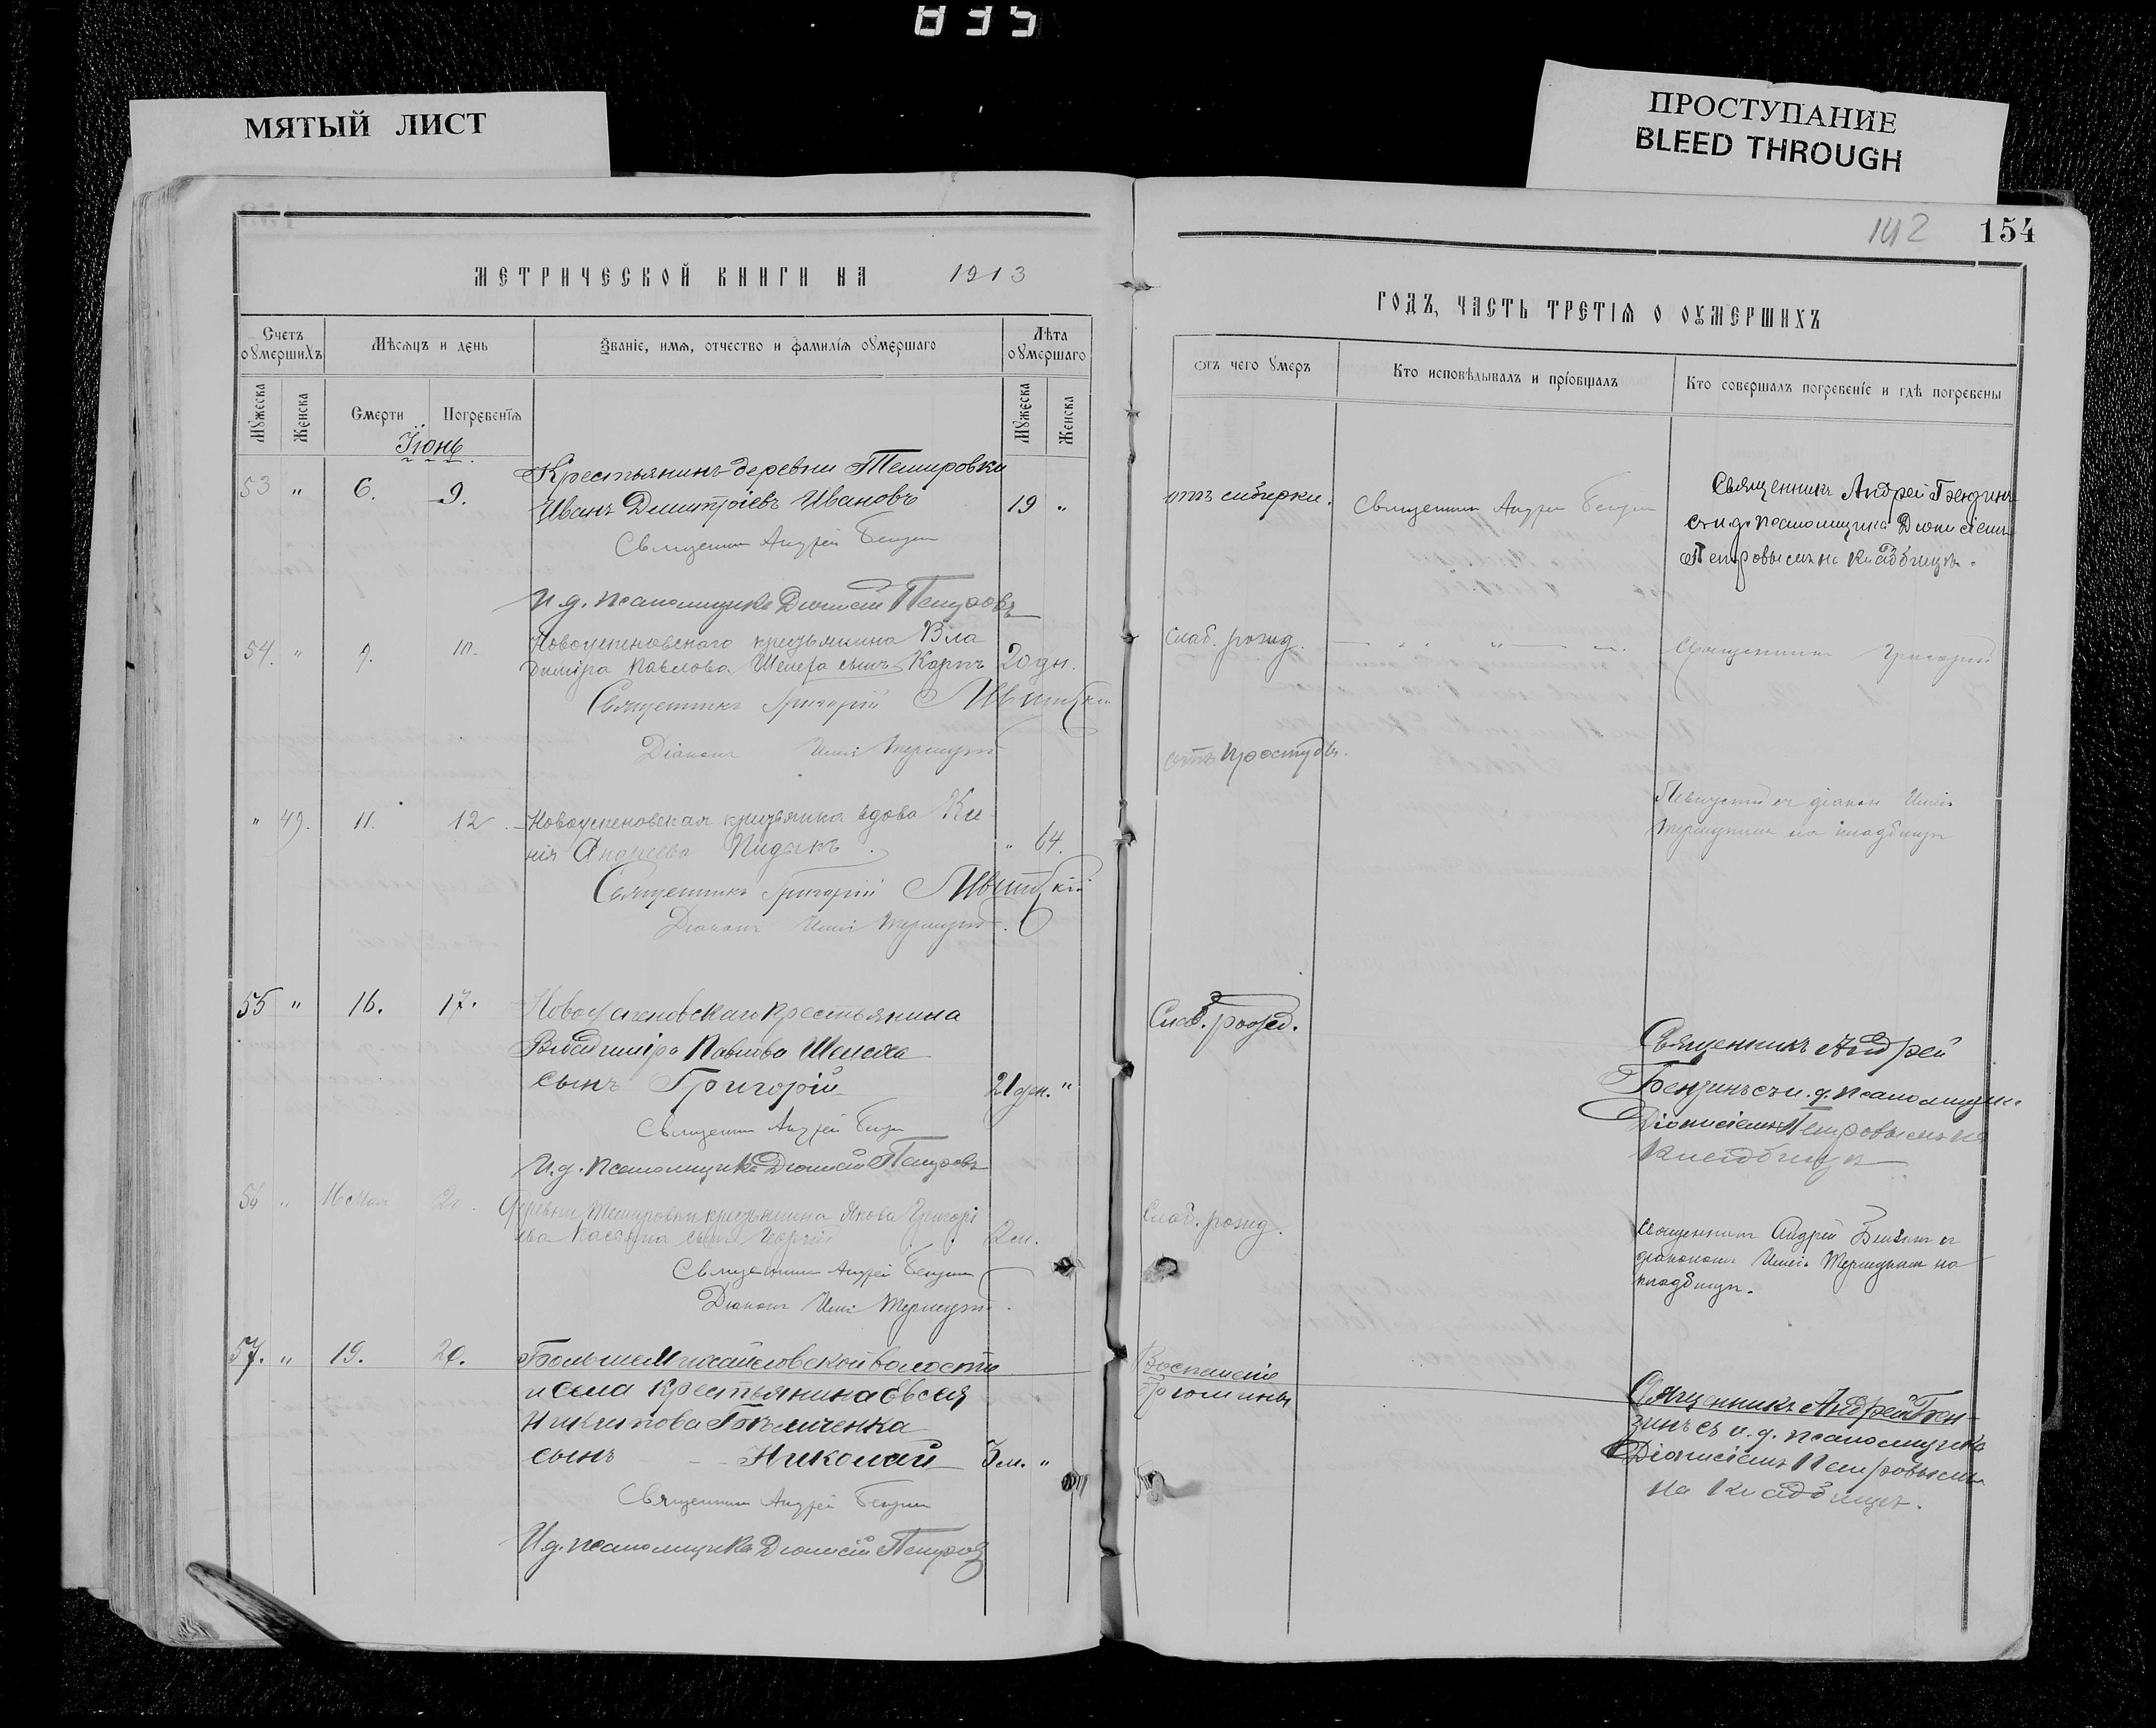 835
МЯТЫЙ ЛИСТ
ПРОСТУПАНИЕ
BLEED THROUGH
142 154
МЕТРИЧЕСКОЙ КНИГИ НА 1913
ГОДЪ, ЧАСТЬ ТРЕТІѦ О ОУМЕРШИХЪ
Счетъ оумершихъ
Мѣсяцъ и день
Званіе, имѧ, отчество и фамиліѧ оумершаго
Лѣта оумершаго
Мужеска
Женска
Смерти
Погребеніѧ
Мужеска
Женска
отъ чего умеръ
Кто исповѣдывалъ и пріобщалъ
Кто совершалъ погребеніе и гдѣ погребены
Іюнь
53 " 6. 9.
Крестьянинъ деревни Темировки
Иванъ Димитріевъ Ивановъ 19 "
Священникъ Андрей Бензинъ
И. д. псаломщика Діонисій Петровъ
Священникъ Андрей Бензинъ
Священникъ Андрей Бензинъ
съ и. д. псаломщика Діонисіемъ
Петровымъ на кладбищѣ.
54. " 9. 10.
Новоуспеновскаго крестьянина Вла
диміра Павлова сынъ Карпъ 20 дн.
Священникъ Григорій
Діаконъ
Слаб. рожд.
Священникъ Григорій
" 49. 11. 12.
Новоуспеновская крестьянка вдова
Андреева 64.
Священникъ Григорій
Діаконъ
отъ простуды.
съ діакон
на кладбищѣ
55 " 16. 17.
Новоуспеновскаго крестьянина
Владиміра Павлова
сынъ Григорій 21 дн. "
Священникъ Андрей Бензинъ
И. д. псаломщика Діонисій Петровъ
Слаб. рожд.
Священникъ Андрей
Бензинъ съ и. д. псаломщика
Діонисіемъ Петровымъ на
кладбищѣ
56 " 16
Деревни Темировки крестьянина Якова Григорі
ева сынъ Георгій 2 м.
Священникъ Андрей Бензинъ
Діаконъ
Слаб. рожд.
Священникъ Андрей Бензинъ съ
діакономъ на
кладбищѣ.
57. " 19. 20.
БольшеМихайловской волости
и села крестьянина Евсея
Никитова
сынъ Николай 3 м. "
Священникъ Андрей Бензинъ
И. д. псаломщика Діонисій Петровъ
Воспаленіе
брюшины
Священникъ Андрей Бен-
зинъ съ и. д. псаломщика
Діонисіемъ Петровымъ
на кладбищѣ.